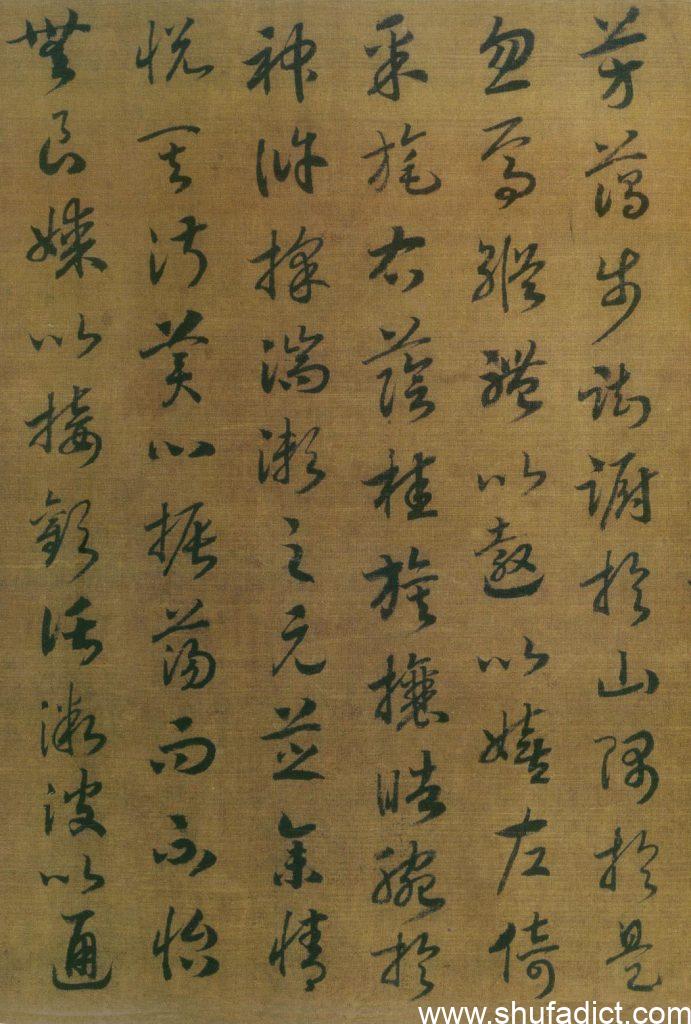 芳藹步踟躕於山隅於是
忽焉縱體以遨以嬉左倚
采旄右蔭桂旗攘皓腕於
神滸採湍瀨之元芝余情
悅其淑美心振蕩而不怡
無良媒以接歡託微波以通
www.shufadict.com